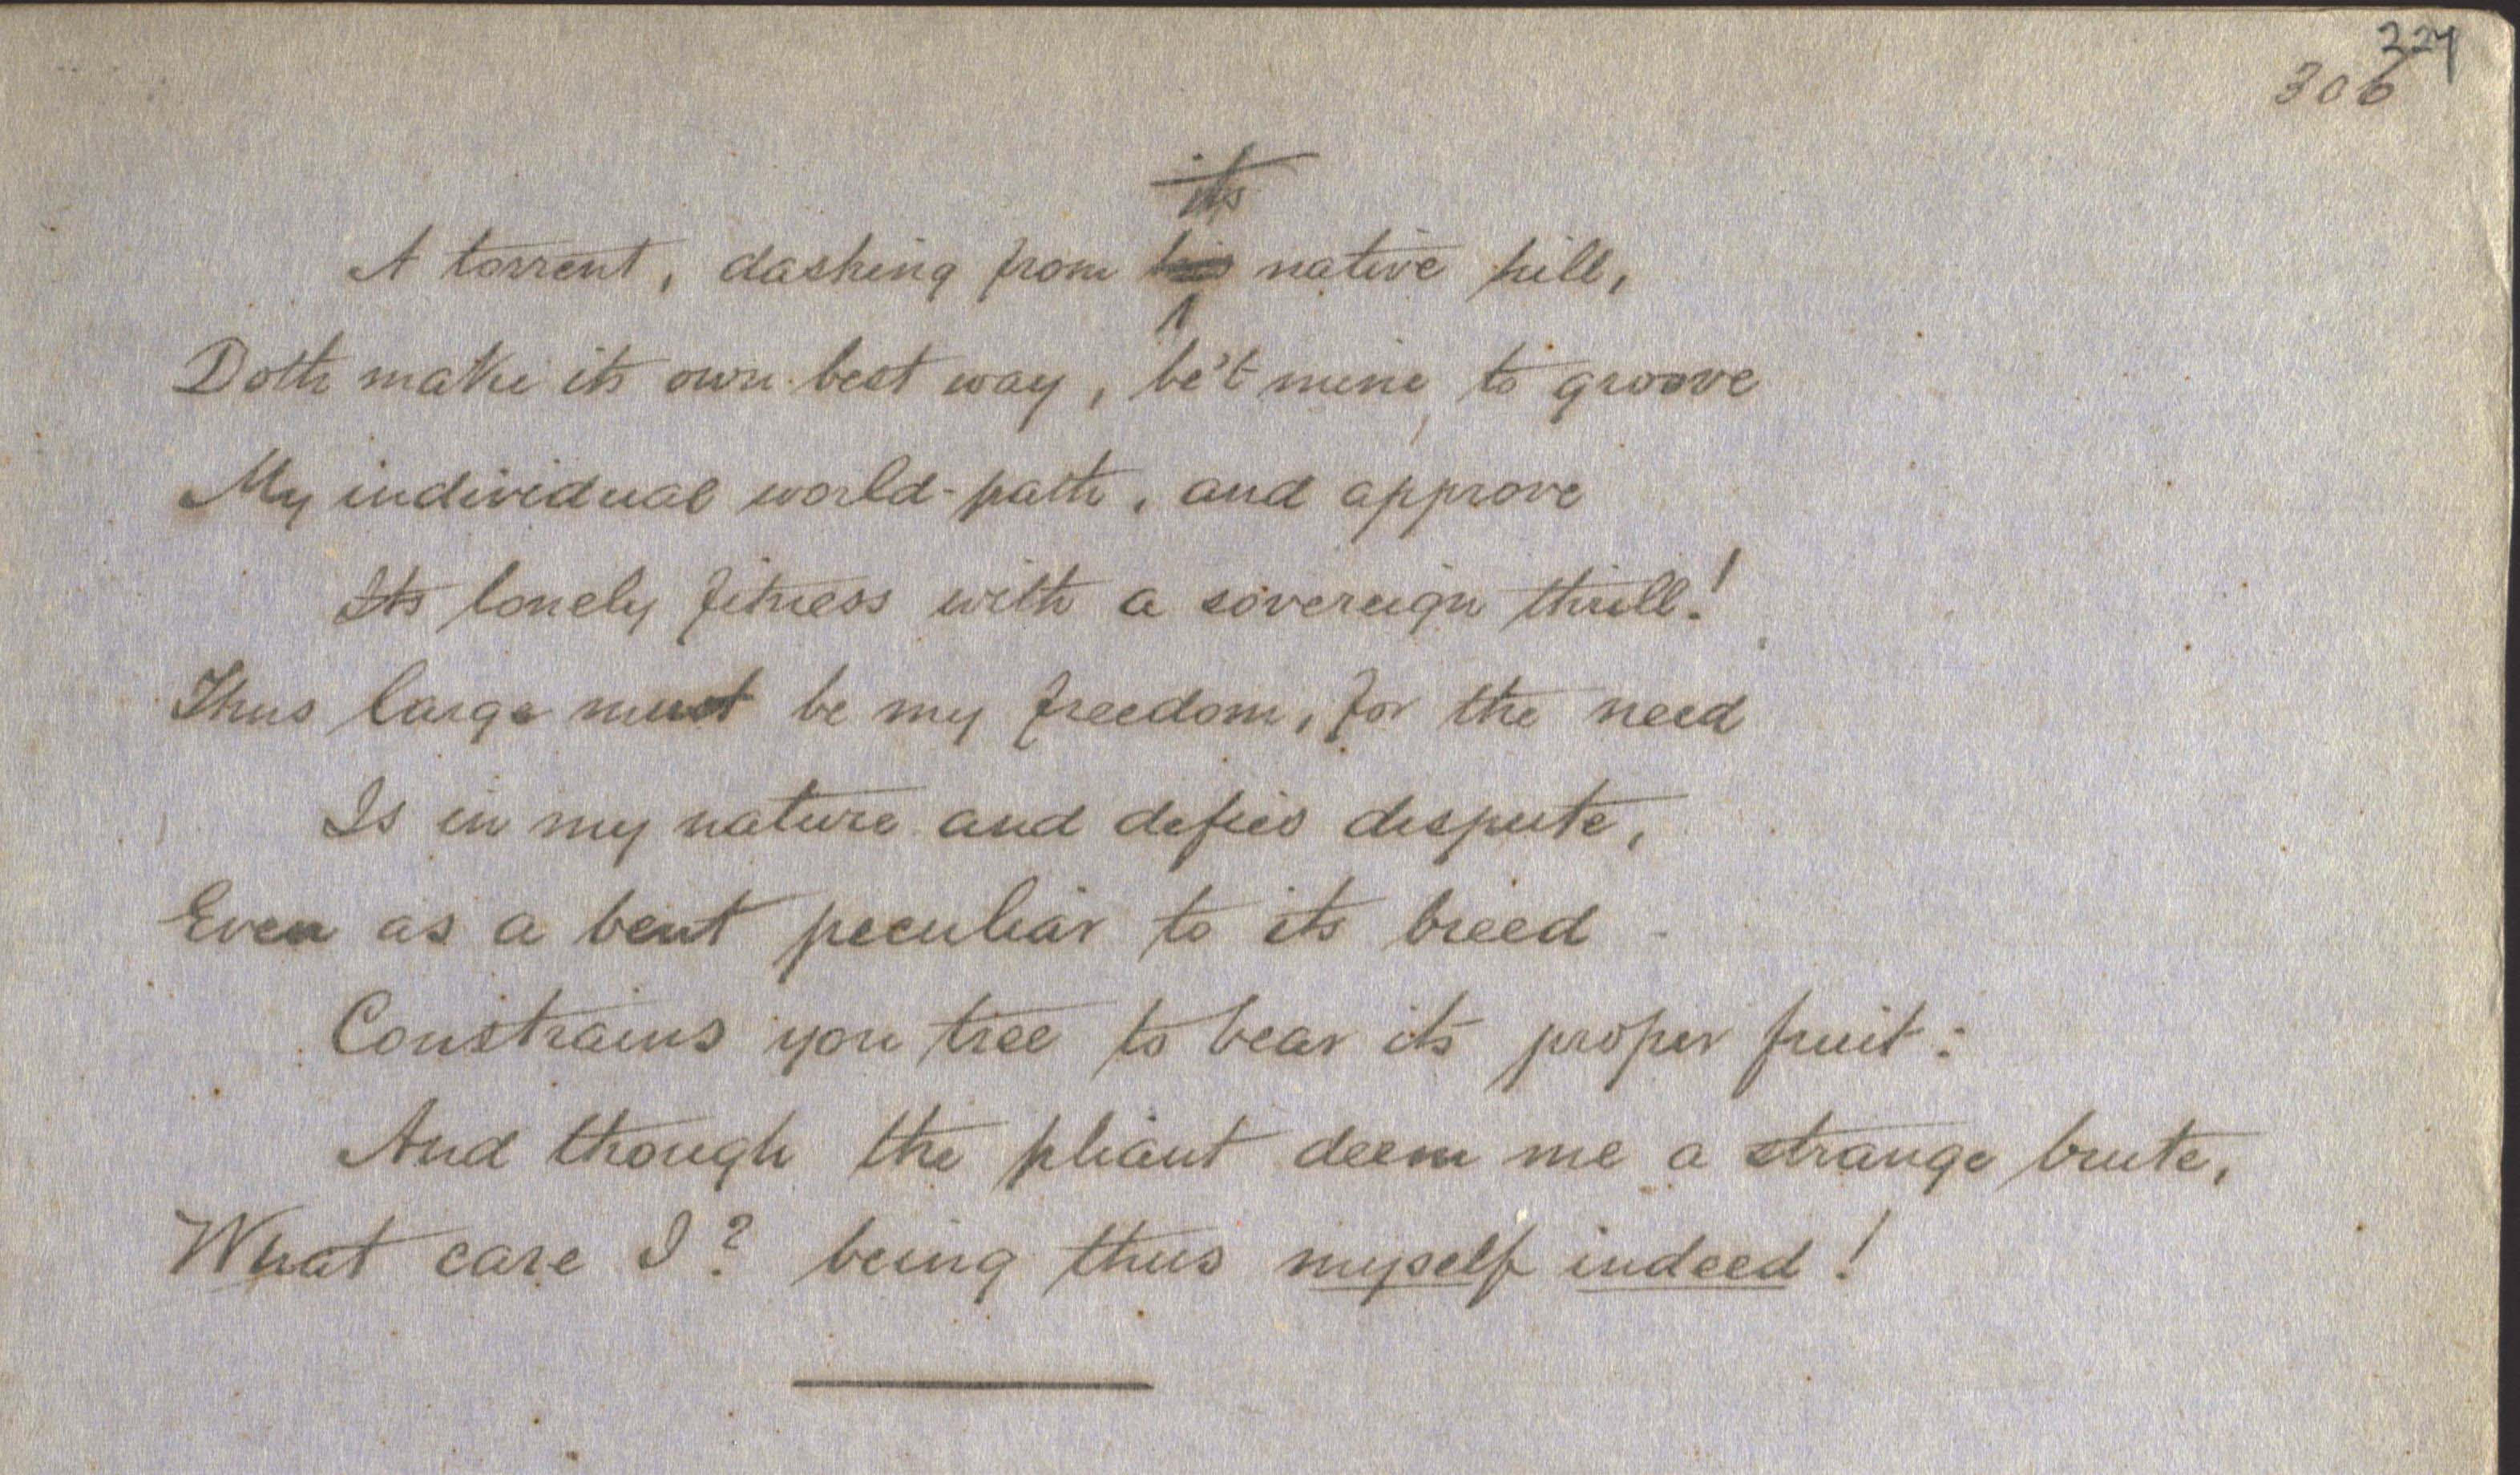 224
306
its
A torrent, dashing from his native hill,
Doth make its own best way, be't mine to groove
My individual world-path, and approve
Its lonely fitness with a sovereign thrill!
Thus large must be my freedom, for the need
Is in my nature and defies dispute,
Even as a bent peculiar to its breed
Constrains yon tree to bear its proper fruit:
And though the pliant deem me a strange brute,
What care I? being thus myself indeed!